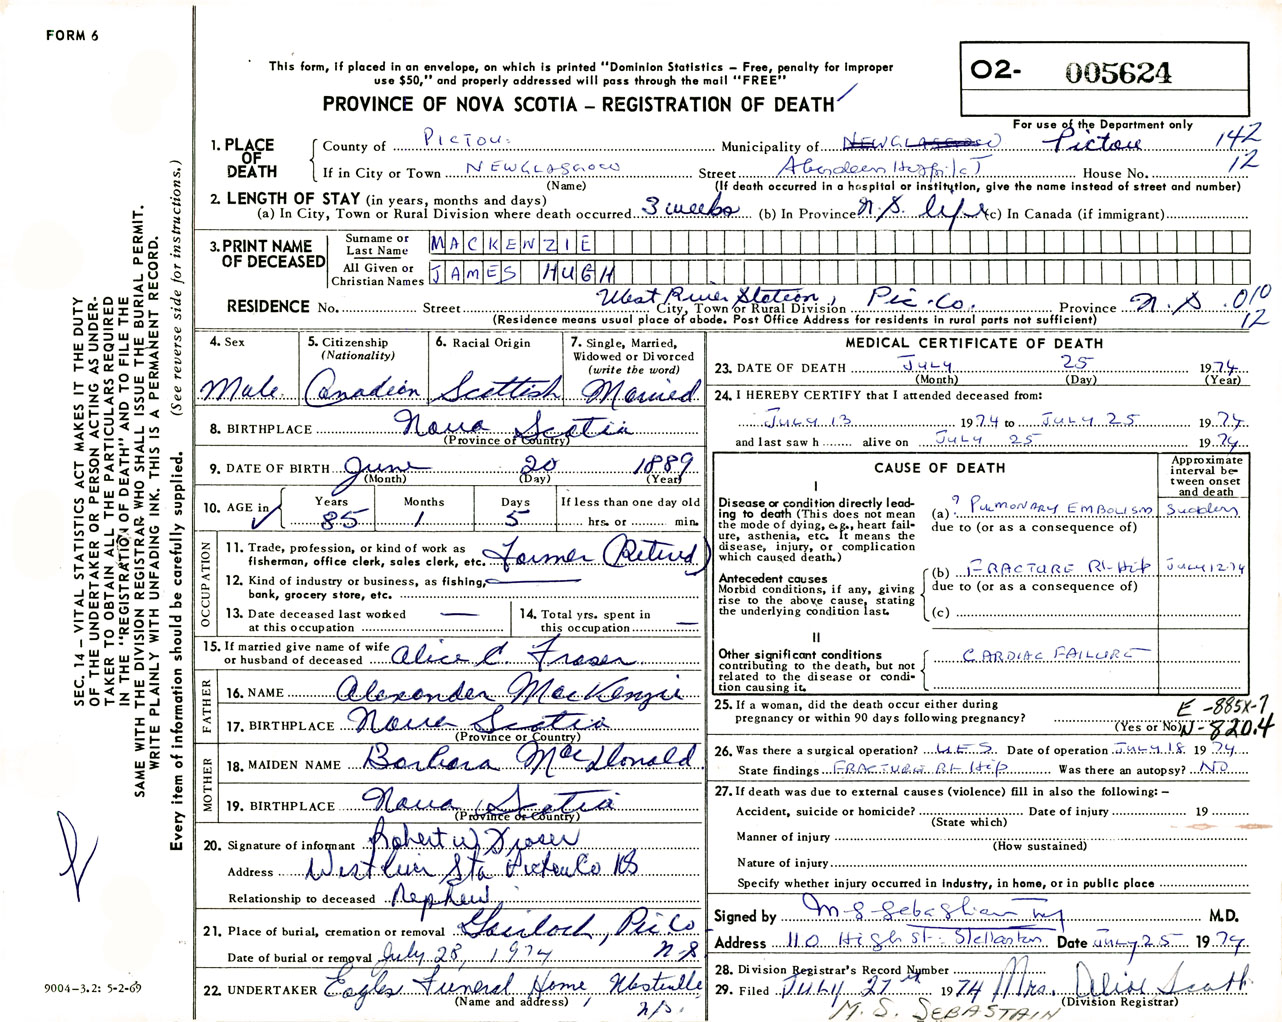 FORM 6
This form, if placed in an envelope, on which is printed "Dominion Statistics – Free, penalty for improper
use $50," and properly addressed will pass through the mail "FREE"
O2- 005624
PROVINCE OF NOVA SCOTIA – REGISTRATION OF DEATH
For use of the Department only
1. PLACE OF DEATH
County of PICTOU Municipality of NEWGLASGOW Pictou 142
If in City or Town NEWGLASGOW Street Aberdeen Hospital House No. 12
(Name) (If death occurred in a hospital or institution, give the name instead of street and number)
2. LENGTH OF STAY (in years, months and days)
(a) In City, Town or Rural Division where death occurred 3 weeks (b) In Province N.S. life (c) In Canada (if immigrant)
3. PRINT NAME OF DECEASED
Surname or Last Name MACKENZIE
All Given or Christian Names JAMES HUGH
RESIDENCE No. Street West River Station, Pic. Co. Province N.S. 010
City, Town or Rural Division 12
(Residence means usual place of abode. Post Office Address for residents in rural parts not sufficient)
4. Sex 5. Citizenship (Nationality) 6. Racial Origin 7. Single, Married, Widowed or Divorced (write the word)
Male Canadian Scottish Married
8. BIRTHPLACE Nova Scotia
(Province or Country)
9. DATE OF BIRTH June 20 1889
(Month) (Day) (Year)
10. AGE in Years Months Days If less than one day old
85 1 5 hrs. or min.
OCCUPATION
11. Trade, profession, or kind of work as fisherman, office clerk, sales clerk, etc. Farmer (Retired)
12. Kind of industry or business, as fishing, bank, grocery store, etc.
13. Date deceased last worked at this occupation
14. Total yrs. spent in this occupation
15. If married give name of wife or husband of deceased Alice C. Fraser
FATHER
16. NAME Alexander MacKenzie
17. BIRTHPLACE Nova Scotia
(Province or Country)
MOTHER
18. MAIDEN NAME Barbara MacDonald
19. BIRTHPLACE Nova Scotia
(Province or Country)
20. Signature of informant Robert W Fraser
Address West River Sta Pictou Co NS
Relationship to deceased Nephew
21. Place of burial, cremation or removal Gairloch, Pic Co
Date of burial or removal July 28, 1974 N-S
22. UNDERTAKER Eagles Funeral Home, Westville
(Name and address) N/S.
MEDICAL CERTIFICATE OF DEATH
23. DATE OF DEATH JULY 25 1974
(Month) (Day) (Year)
24. I HEREBY CERTIFY that I attended deceased from:
JULY 13 1974 to JULY 25 1974
and last saw h alive on JULY 25 1974
CAUSE OF DEATH
Approximate interval between onset and death
I
Disease or condition directly leading to death (This does not mean the mode of dying, e.g., heart failure, asthenia, etc. It means the disease, injury, or complication which caused death.)
(a) ? PULMONARY EMBOLISM Sudden
due to (or as a consequence of)
Antecedent causes
Morbid conditions, if any, giving rise to the above cause, stating the underlying condition last.
(b) FRACTURE Rt Hip JULY 12 74
due to (or as a consequence of)
(c)
II
Other significant conditions
contributing to the death, but not related to the disease or condition causing it.
CARDIAC FAILURE
25. If a woman, did the death occur either during pregnancy or within 90 days following pregnancy? (Yes or No)
E -885X-7
N-820.4
26. Was there a surgical operation? YES Date of operation JULY 18 1974
State findings FRACTURE Rt Hip Was there an autopsy? NO
27. If death was due to external causes (violence) fill in also the following: –
Accident, suicide or homicide? Date of injury 19
(State which)
Manner of injury
(How sustained)
Nature of injury
Specify whether injury occurred in industry, in home, or in public place
Signed by M S Sebastian M.D.
Address 110 High St. Stellarton Date JULY 25 1974
28. Division Registrar's Record Number
29. Filed JULY 27th 1974 Mrs. Alice Scott
(Division Registrar)
M. S. SEBASTAIN
SEC. 14 – VITAL STATISTICS ACT MAKES IT THE DUTY
OF THE UNDERTAKER OR PERSON ACTING AS UNDER-
TAKER TO OBTAIN ALL THE PARTICULARS REQUIRED
IN THE "REGISTRATION OF DEATH" AND TO FILE THE
SAME WITH THE DIVISION REGISTRAR WHO SHALL ISSUE THE BURIAL PERMIT.
WRITE PLAINLY WITH UNFADING INK. THIS IS A PERMANENT RECORD.
Every item of information should be carefully supplied. (See reverse side for instructions.)
9004-3.2: 5-2-69